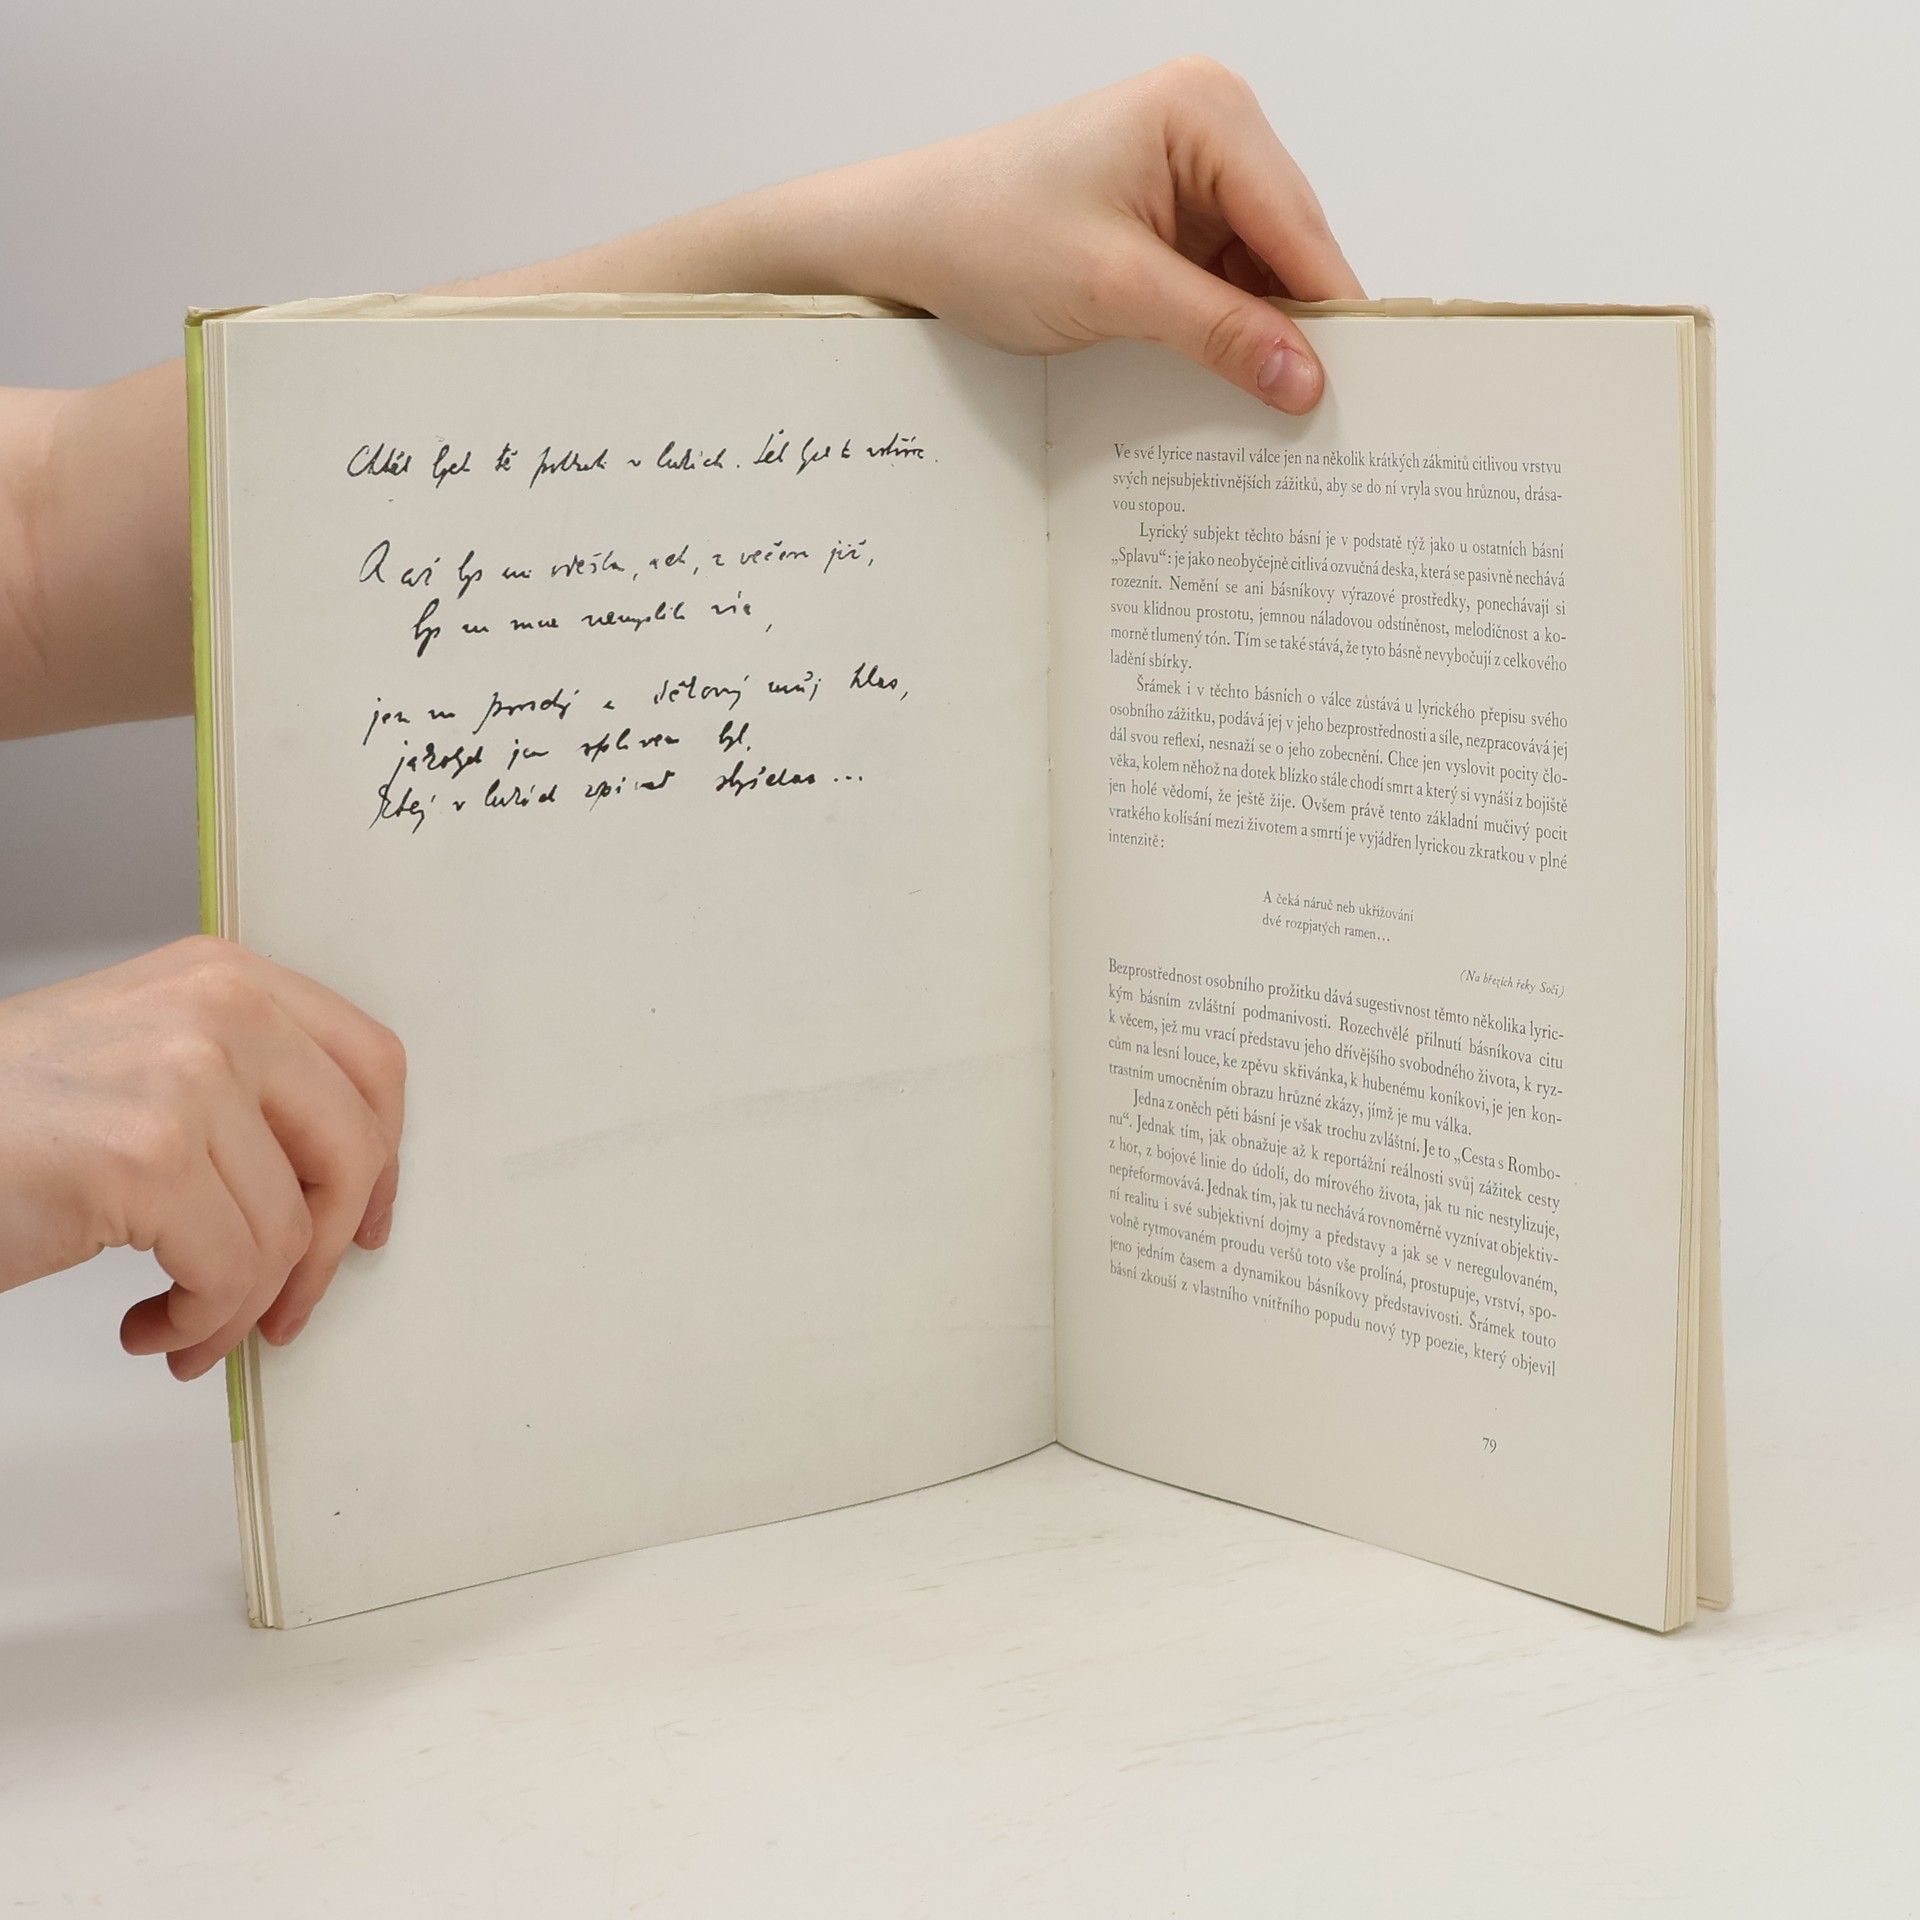 Chtěl bych tě potkati v lukách. Šel bych ti vstříc.
A až bys mi odešla, ach, z večera již,
bys na mne nemyslila víc,
jen na a můj hlas,
jakobych jen splavem byl,
který v lukách zpívat slyšelas ...
Ve své lyrice nastavil válce jen na několik krátkých zákmitů citlivou vrstvu
svých nejsubjektivnějších zážitků, aby se do ní vryla svou hrůznou, drása-
vou stopou.
Lyrický subjekt těchto básní je v podstatě týž jako u ostatních básní
„Splavu“: je jako neobyčejně citlivá ozvučná deska, která se pasivně nechává
rozeznít. Nemění se ani básníkovy výrazové prostředky, ponechávají si
svou klidnou prostotu, jemnou náladovou odstíněnost, melodičnost a ko-
morně tlumený tón. Tím se také stává, že tyto básně nevybočují z celkového
ladění sbírky.
Šrámek i v těchto básních o válce zůstává u lyrického přepisu svého
osobního zážitku, podává jej v jeho bezprostřednosti a síle, nezpracovává jej
dál svou reflexí, nesnaží se o jeho zobecnění. Chce jen vyslovit pocity člo-
věka, kolem něhož na dotek blízko stále chodí smrt a který si vynáší z bojiště
jen holé vědomí, že ještě žije. Ovšem právě tento základní mučivý pocit
vratkého kolísání mezi životem a smrtí je vyjádřen lyrickou zkratkou v plné
intenzitě:
A čeká náruč neb ukřižování
dvé rozpjatých ramen...
(Na březích řeky Soči)
Bezprostřednost osobního prožitku dává sugestivnost těmto několika lyric-
kým básním zvláštní podmanivosti. Rozechvělé přilnutí básníkova citu
k věcem, jež mu vrací představu jeho dřívějšího svobodného života, k ryz-
cům na lesní louce, ke zpěvu skřivánka, k hubenému koníkovi, je jen kon-
trastním umocněním obrazu hrůzné zkázy, jímž je mu válka.
Jedna z oněch pěti básní je však trochu zvláštní. Je to „Cesta s Rombo-
nu“. Jednak tím, jak obnažuje až k reportážní reálnosti svůj zážitek cesty
z hor, z bojové linie do údolí, do mírového života, jak tu nic nestylizuje,
nepřeformovává. Jednak tím, jak tu nechává rovnoměrně vyznívat objektiv-
ní realitu i své subjektivní dojmy a představy a jak se v neregulovaném,
volně rytmovaném proudu veršů toto vše prolíná, prostupuje, vrství, spo-
jeno jedním časem a dynamikou básníkovy představivosti. Šrámek touto
básní zkouší z vlastního vnitřního popudu nový typ poezie, který objevil
79